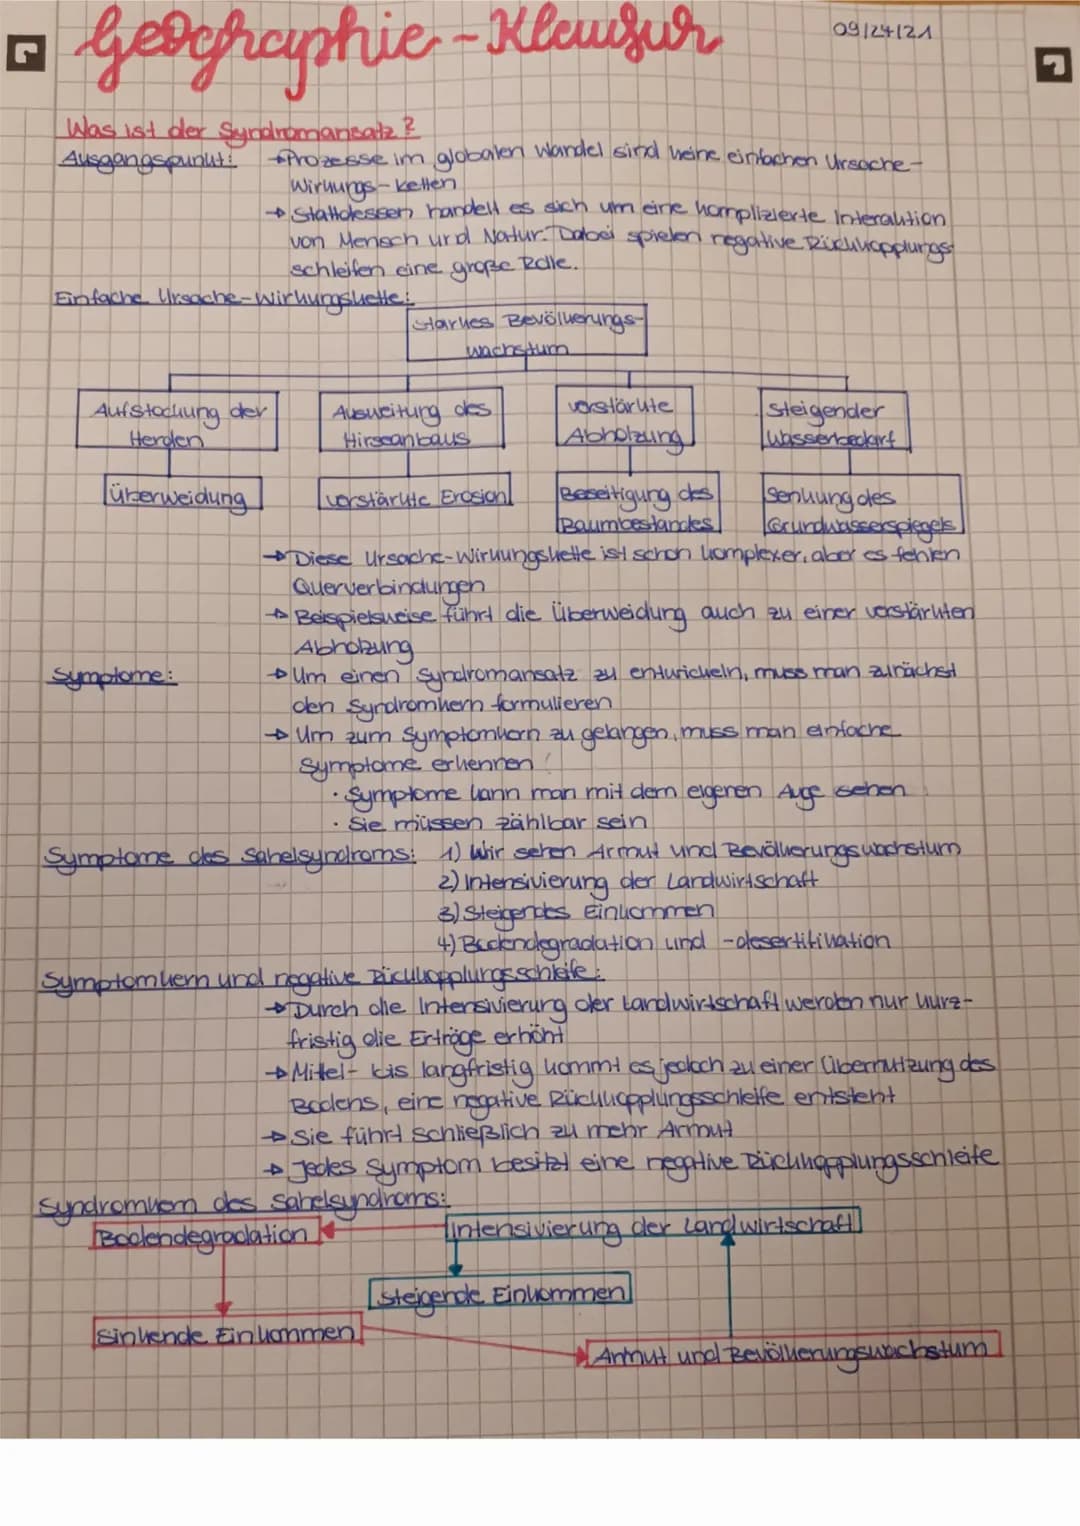 Geographie-Klausur
09/24/21
Was ist der Syndromansatz?
Ausgangspunkt: → Prozesse im globalen Wandel sind keine einfachen Ursache-
Wirkungs-Ketten
→ Stattdessen handelt es sich um eine komplizierte Interaktion
von Mensch und Natur. Dabei spielen negative Rückkopplungs
schleifen eine große Rolle.
Einfache Ursache-Wirkungskette:
starkes Bevölkerungs-
wachstum
Aufstockung der
Herden
Ausweitung des
Hirseanbaus
verstärkte
Abholzung
Steigender
Wasserbedarf
Überweidung
verstärkte Erosion
Beseitigung des
Baumbestandes
Senkung des
Grundwasserspiegels
→ Diese Ursache-Wirkungskette ist schon komplexer, aber es fehlen
Querverbindungen
→ Beispielsweise führt die Überweidung auch zu einer verstärkten
Abholzung
Symptome: → Um einen Syndromansatz zu entwickeln, muss man zunächst
den Syndromkern formulieren
→ Um zum Symptomkern zu gelangen, muss man einfache
Symptome erkennen!
· Symptome kann man mit dem eigenen Auge sehen
· Sie müssen zählbar sein
Symptome des Sahelsyndroms: 1) Wir sehen Armut und Bevölkerungswachstum
2) Intensivierung der Landwirtschaft
3) Steigendes Einkommen
4) Bodendegradation und -desertifikation
Symptomkern und negative Rückkopplungsschleife:
→ Durch die Intensivierung der Landwirtschaft werden nur kurz-
fristig die Erträge erhöht
→ Mittel- bis langfristig kommt es jedoch zu einer Übernutzung des
Bodens, eine negative Rückkopplungsschleife entsteht
→ Sie führt schließlich zu mehr Armut
→ Jedes Symptom besitzt eine negative Rückkopplungsschleife
Syndromkern des Sahelsyndroms:
Bodendegradation
Intensivierung der Landwirtschaft
steigende Einkommen
sinkende Einkommen
Armut und Bevölkerungswachstum